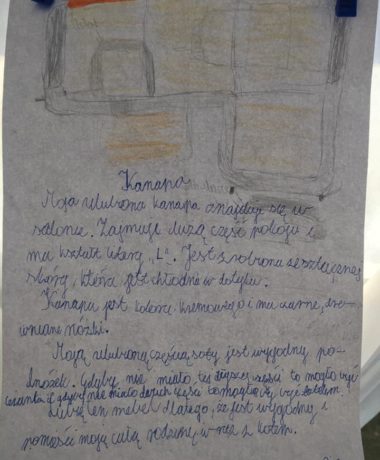 Kanapa
Moja ulubiona kanapa znajduje się w
salonie. Zajmuje dużą część pokoju i
ma kształt litery „L". Jest zrobiona ze sztucznej
skóry, która jest chłodna w dotyku.
Kanapa jest koloru kremowego i ma czarne, dre-
wniane nóżki.
Moją ulubioną częścią sofy jest wygodny po-
dnóżek. Gdyby nie miała tej części to mogła być
gdyby nie miała części to mogła by być
Lubię ten mebel dlatego, że jest wygodny i
pomieści moją całą rodzinę w raz z kotem.